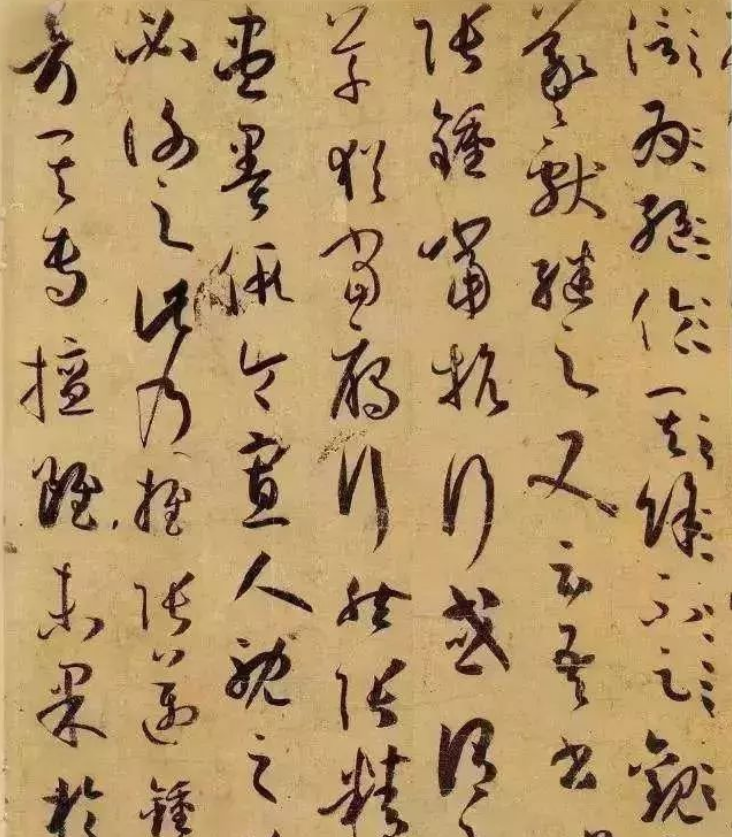 信為絕倫其餘不足觀
羲獻繼之又云吾書
張鍾當抗行或謂
草猶當鴈行然張精
盡墨假令寡人耽之
必謝之此乃推張邁鍾
考其專擅雖未果於